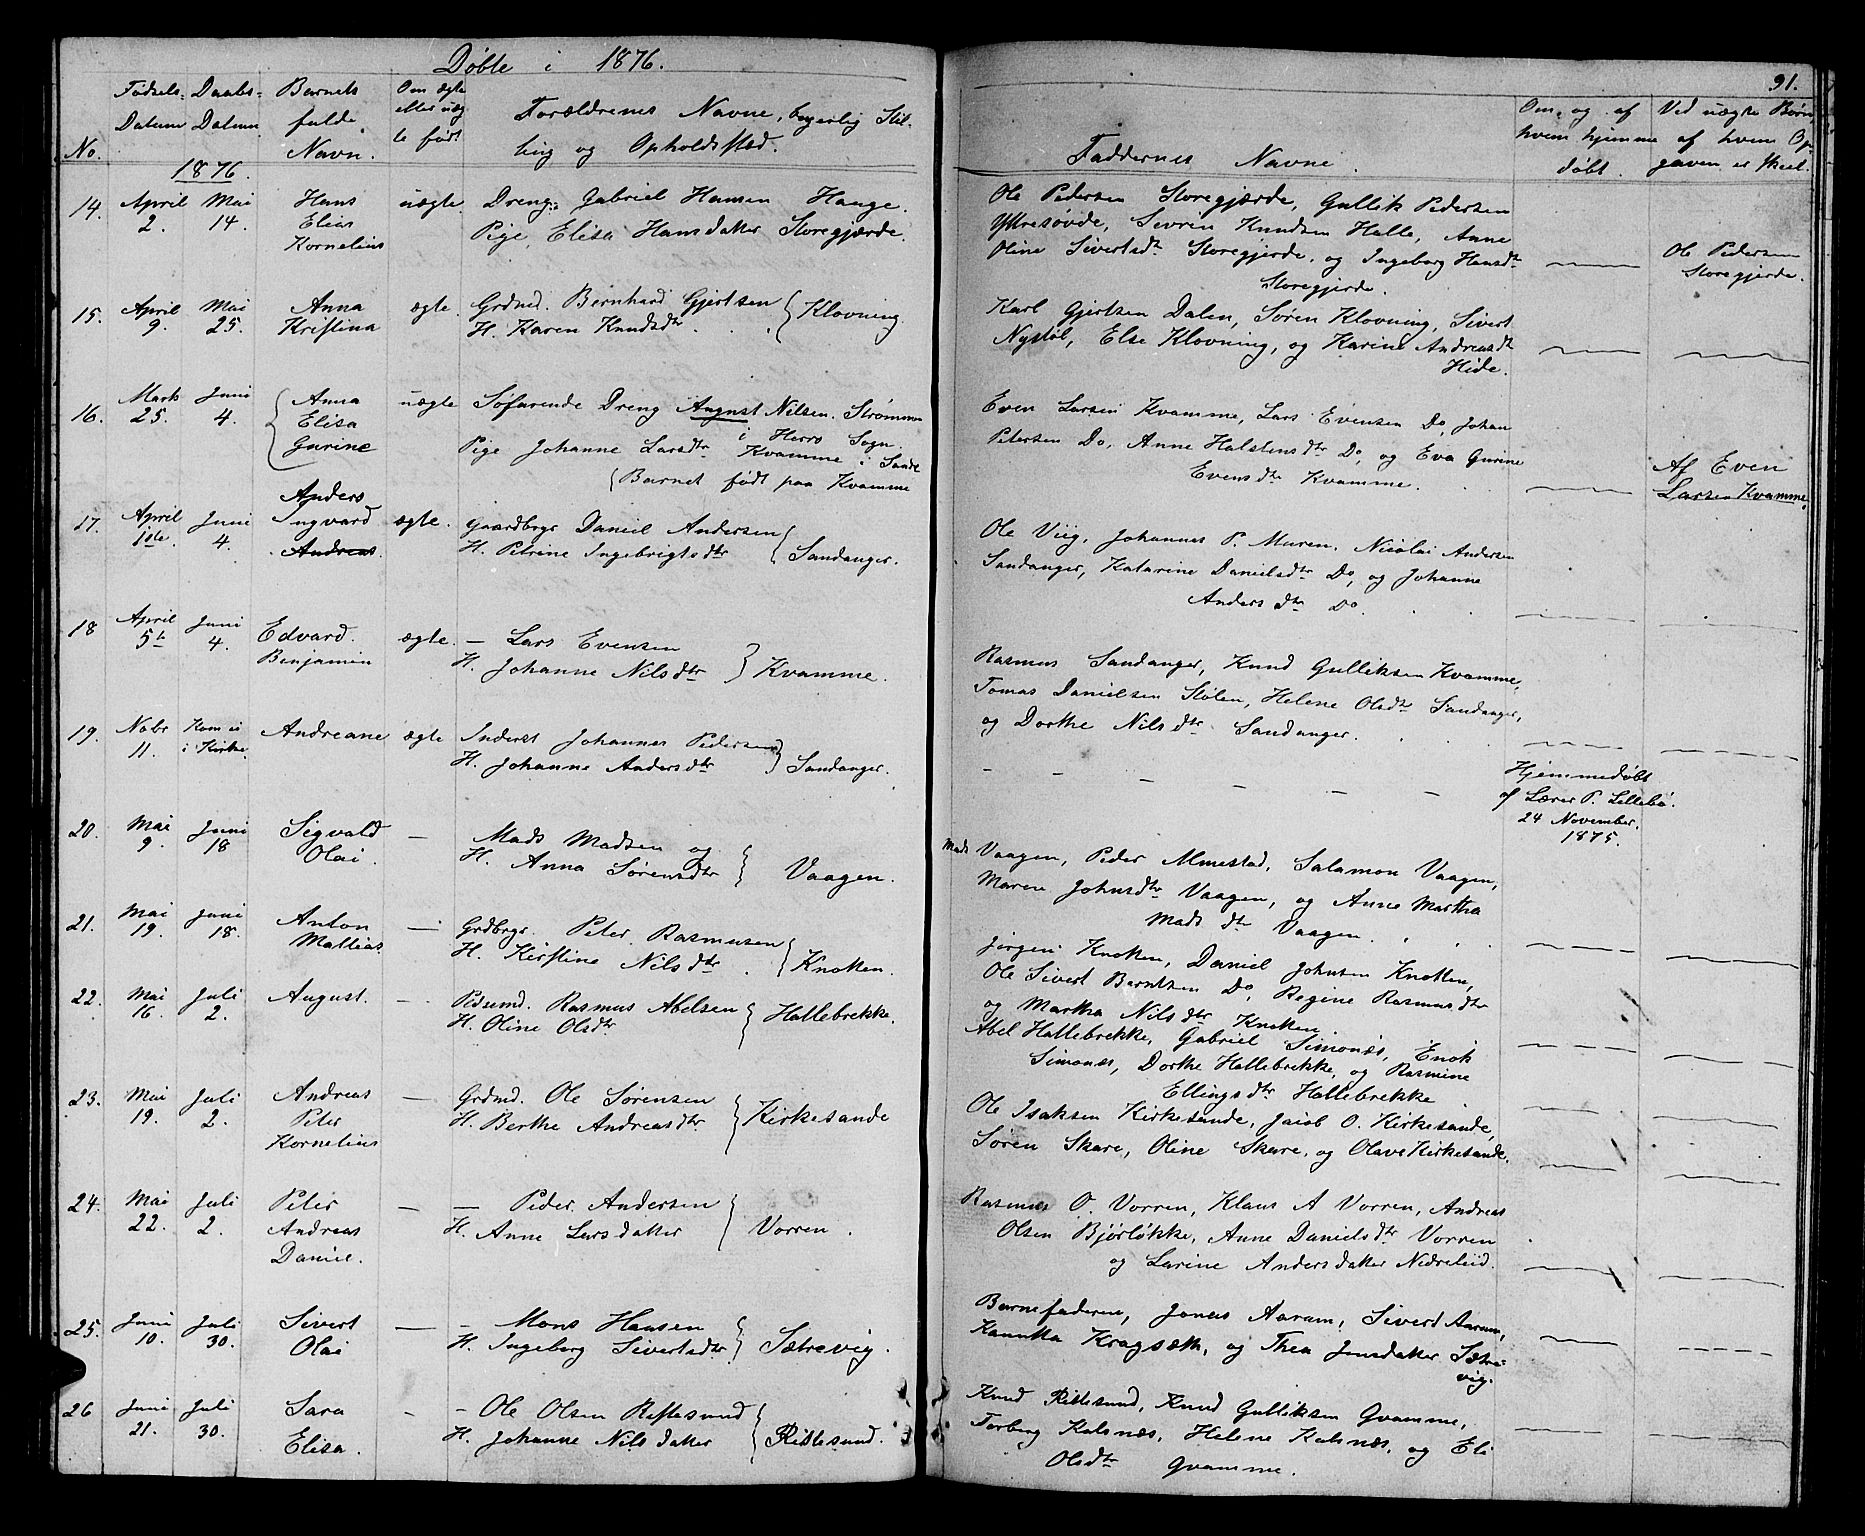 Døbte i 1876.
91.
No.
Fødsels-
Datum
Daabs-
Datum
Barnets
fulde
Navn.
Om ægte
eller uæg
te født.
Forældrenes Navne, borgerlig Stil-
ling og Opholdssted.
Faddernes Navne
Om og af
hvem hjemme
døbt.
Ved uægte Børn
af hvem Op-
gaven er skeet.
1876.
14. April 2. Mai 14. Hans
Elias
Kornelius
uægte. Dreng. Gabriel Hansen Hauge.
Pige, Elisa Hansdatter Storegjærde.
Ole Pedersen Storegjærde, Gullik Pedersen
Ytresøvde, Sevrin Knudsen Halle, Anne
Oline Sivertsdtr Storegjerde, og Ingeborg Hansdtr
Storegjerde.
Ole Pedersen
Storegjerde.
15. April 9 Mai 25. Anna
Kristina
ægte. Grdmd. Bernhard Gjertsen
H. Karen Knudsdtr . . . Klovning.
Karl Gjertsen Dalen, Søren Klovning, Sivert
Nystøl, Else Klovning, og Karine Andreasdtr
Hide.
16. Marts 25. Juni 4. Anna
Elisa
Gurine
uægte Søfarende Dreng August Nilsen. Strømmen
i Herrø Sogn.
Pige Johanne Larsdtr Kvamme i Sande
Barnet født paa Kvamme
Even Larsen Kvamme, Lars Evensen Do, Johan
Petersen Do, Anne Halstensdtr Do, og Eva Gurine
Evensdtr Kvamme.
Af Even
Larsen Kvamme.
17. April 1ste. Juni 4. Anders
Ingvard
Andreas.
ægte. Gaardbrgr Daniel Andersen
H. Petrine Ingebrigtsdtr Sandanger.
Ole Viig, Johannes P. Muren, Nicolai Andersen
Sandanger, Katarine Danielsdtr Do, og Johanne
Andersdtr Do.
18 April 5te Juni 4. Edvard.
Benjamin
ægte. — Lars Evensen
H. Johanne Nilsdtr Kvamme.
Rasmus Sandanger, Knud Gulliksen Kvamme,
Tomas Danielsen Stølen, Helene Olsdtr Sandanger,
og Dorthe Nilsdtr Sandanger.
19. Nobr 11. Kom ei
i Kirke.
Andreane ægte Inderst Johannes Pedersen
H. Johanne Andersdtr Sandanger.
Hjemmedøbt
af Lærer P. Lillebø.
24 November.
1875.
20. Mai 9. Juni 18 Sigvald
Olai.
— Mads Madsen og
H. Anna Sørensdtr Vaagen.
Mads Vaagen, Peder Almestad, Salamon Vaagen,
Maren Johnsdtr Vaagen, og Anne Martha
Madsdtr Vaagen.
21. Mai 19. Juni 18. Anton
Mattias.
— Grdbrgr. Peter Rasmusen
H. Kirstine Nilsdtr. Knotten.
Jørgen Knotten, Daniel Johnsen Knotten,
Ole Sivert Berntsen Do, Regine Rasmusdtr
og Martha Nilsdtr Knotten.
22. Mai 16. Juli 2. August. — Rasmus Abelsen
H. Oline Olsdtr Hallebrekke.
Abel Hallebrekke, Gabriel Simonæs, Enok
Simonæs, Dorthe Hallebrekke, og Rasmine
Ellingsdtr Hallebrekke.
23. Mai 19. Juli 2. Andreas
Peter
Kornelius
— Grdmd. Ole Sørensen
H. Berthe Andreasdtr Kirkesande
Ole Isaksen Kirkesande, Jacob O. Kirkesande,
Søren Skare, Oline Skare, og Olave Kirkesande.
24. Mai 22. Juli 2. Peter
Andreas
Daniel.
— — Peder Andersen
H. Anne Larsdatter Vorren.
Rasmus O. Vorren, Klaus A Vorren, Andreas
Olsen Bjørløkke, Anne Danielsdtr Vorren
og Larine Andersdatter Nedreleid.
25. Juni 10. Juli 30. Sivert
Olai
— — Mons Hansen
H. Ingeborg Sivertsdtr Sætrevig.
Barnefaderen, Jonas Aaram, Siverd Aaram,
Kragsæth, og Thea Jensdatter Sætre-
vig.
26 Juni 21. Juli 30. Sara
Elisa.
— — Ole Olsen Riftesund
H. Johanne Nilsdatter Riftesund.
Knud Riftesund, Knud Gulliksen Gvamme,
Torberg Kalsnæs, Helene Kalsnæs, og Eli
Olsdtr Gvamme.